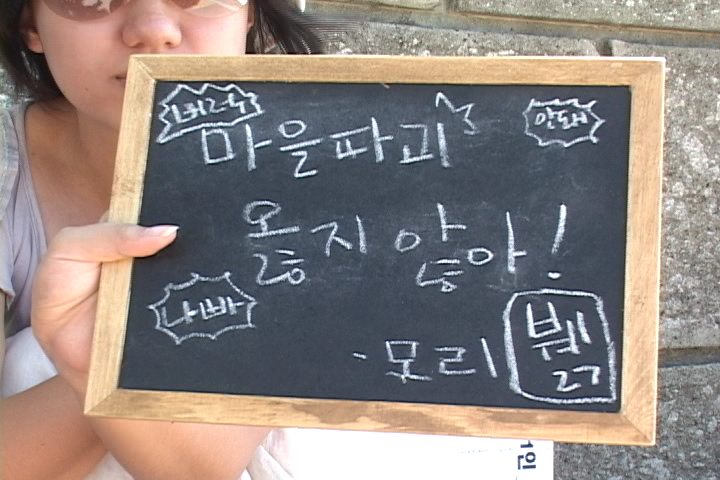 마을파괴
안돼
옳지 않아!
나빠
-모리
뷁
1인